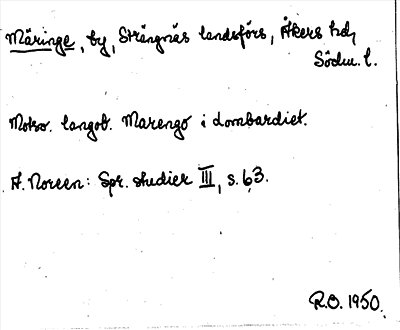 Märinge, by, Strängnäs landsförs, Åkers hd,
Södm. l.
Motsv. langob. Marengo i Lombardiet.
A. Noreen: Spr. studier III, s. 63.
R.O. 1950.